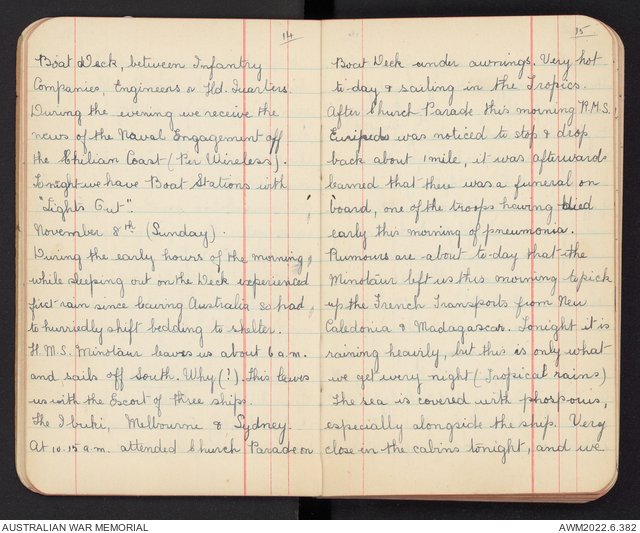 14
Boat Deck, between Infantry
Companies, Engineers & Hd. Quarters.
During the evening we receive the
news of the Naval Engagement off
the Chilian Coast (Per Wireless).
Tonight we have Boat Stations with
"Lights Out".
November 8th (Sunday).
During the early hours of the morning,
while sleeping out on the Deck experienced
first rain since leaving Australia so had
to hurriedly shift bedding to shelter.
H.M.S. Minotaur leaves us about 6 a.m.
and sails off South. Why (?). This leaves
us with the Escort of three ships.
The Ibuki, Melbourne & Sydney.
At 10.15 a.m. attended Church Parade on
15
Boat Deck under awnings. Very hot
to-day, & sailing in the Tropics.
After Church Parade this morning R.M.S.
Euripeds was noticed to stop & drop
back about 1 mile, it was afterwards
learned that there was a funeral on
board, one of the troops having died
early this morning of pneumonia.
Rumours are about to-day that the
Minotaur left us this morning to pick
up the French Transports from New
Caledonia & Madagascar. Tonight it is
raining heavily, but this is only what
we get every night (Tropical rains)
The sea is covered with phosporus,
especially alongside the ship. Very
close in the cabins tonight, and we
AUSTRALIAN WAR MEMORIAL
AWM2022.6.382